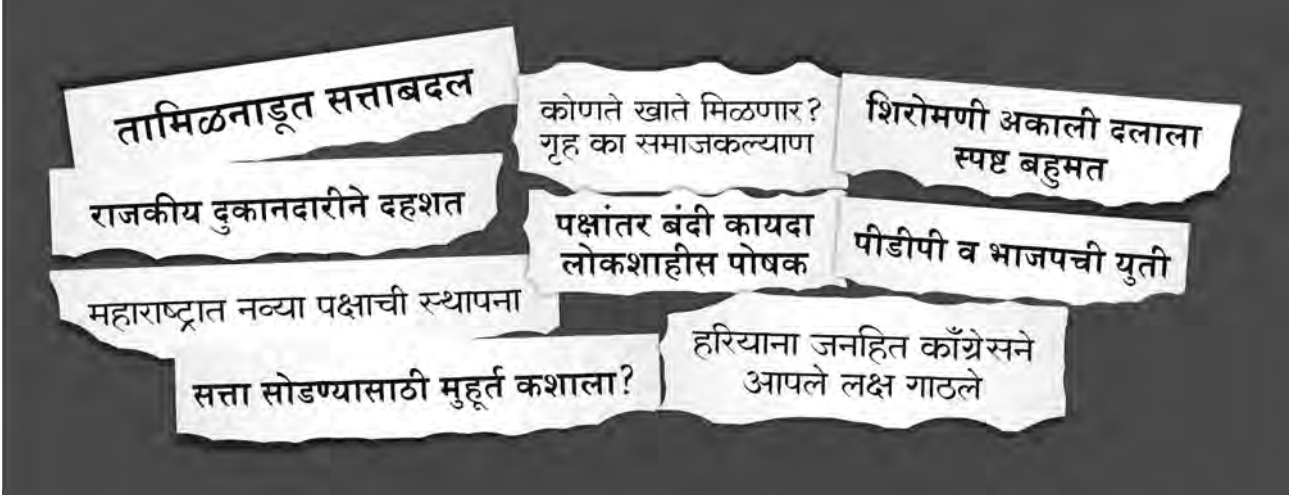 तामिळनाडूत सत्ताबदल
कोणते खाते मिळणार?
गृह का समाजकल्याण
शिरोमणी अकाली दलाला
स्पष्ट बहुमत
राजकीय दुकानदारीने दहशत
पक्षांतर बंदी कायदा
लोकशाहीस पोषक
पीडीपी व भाजपची युती
महाराष्ट्रात नव्या पक्षाची स्थापना
सत्ता सोडण्यासाठी मुहूर्त कशाला?
हरियाना जनहित काँग्रेसने
आपले लक्ष गाठले